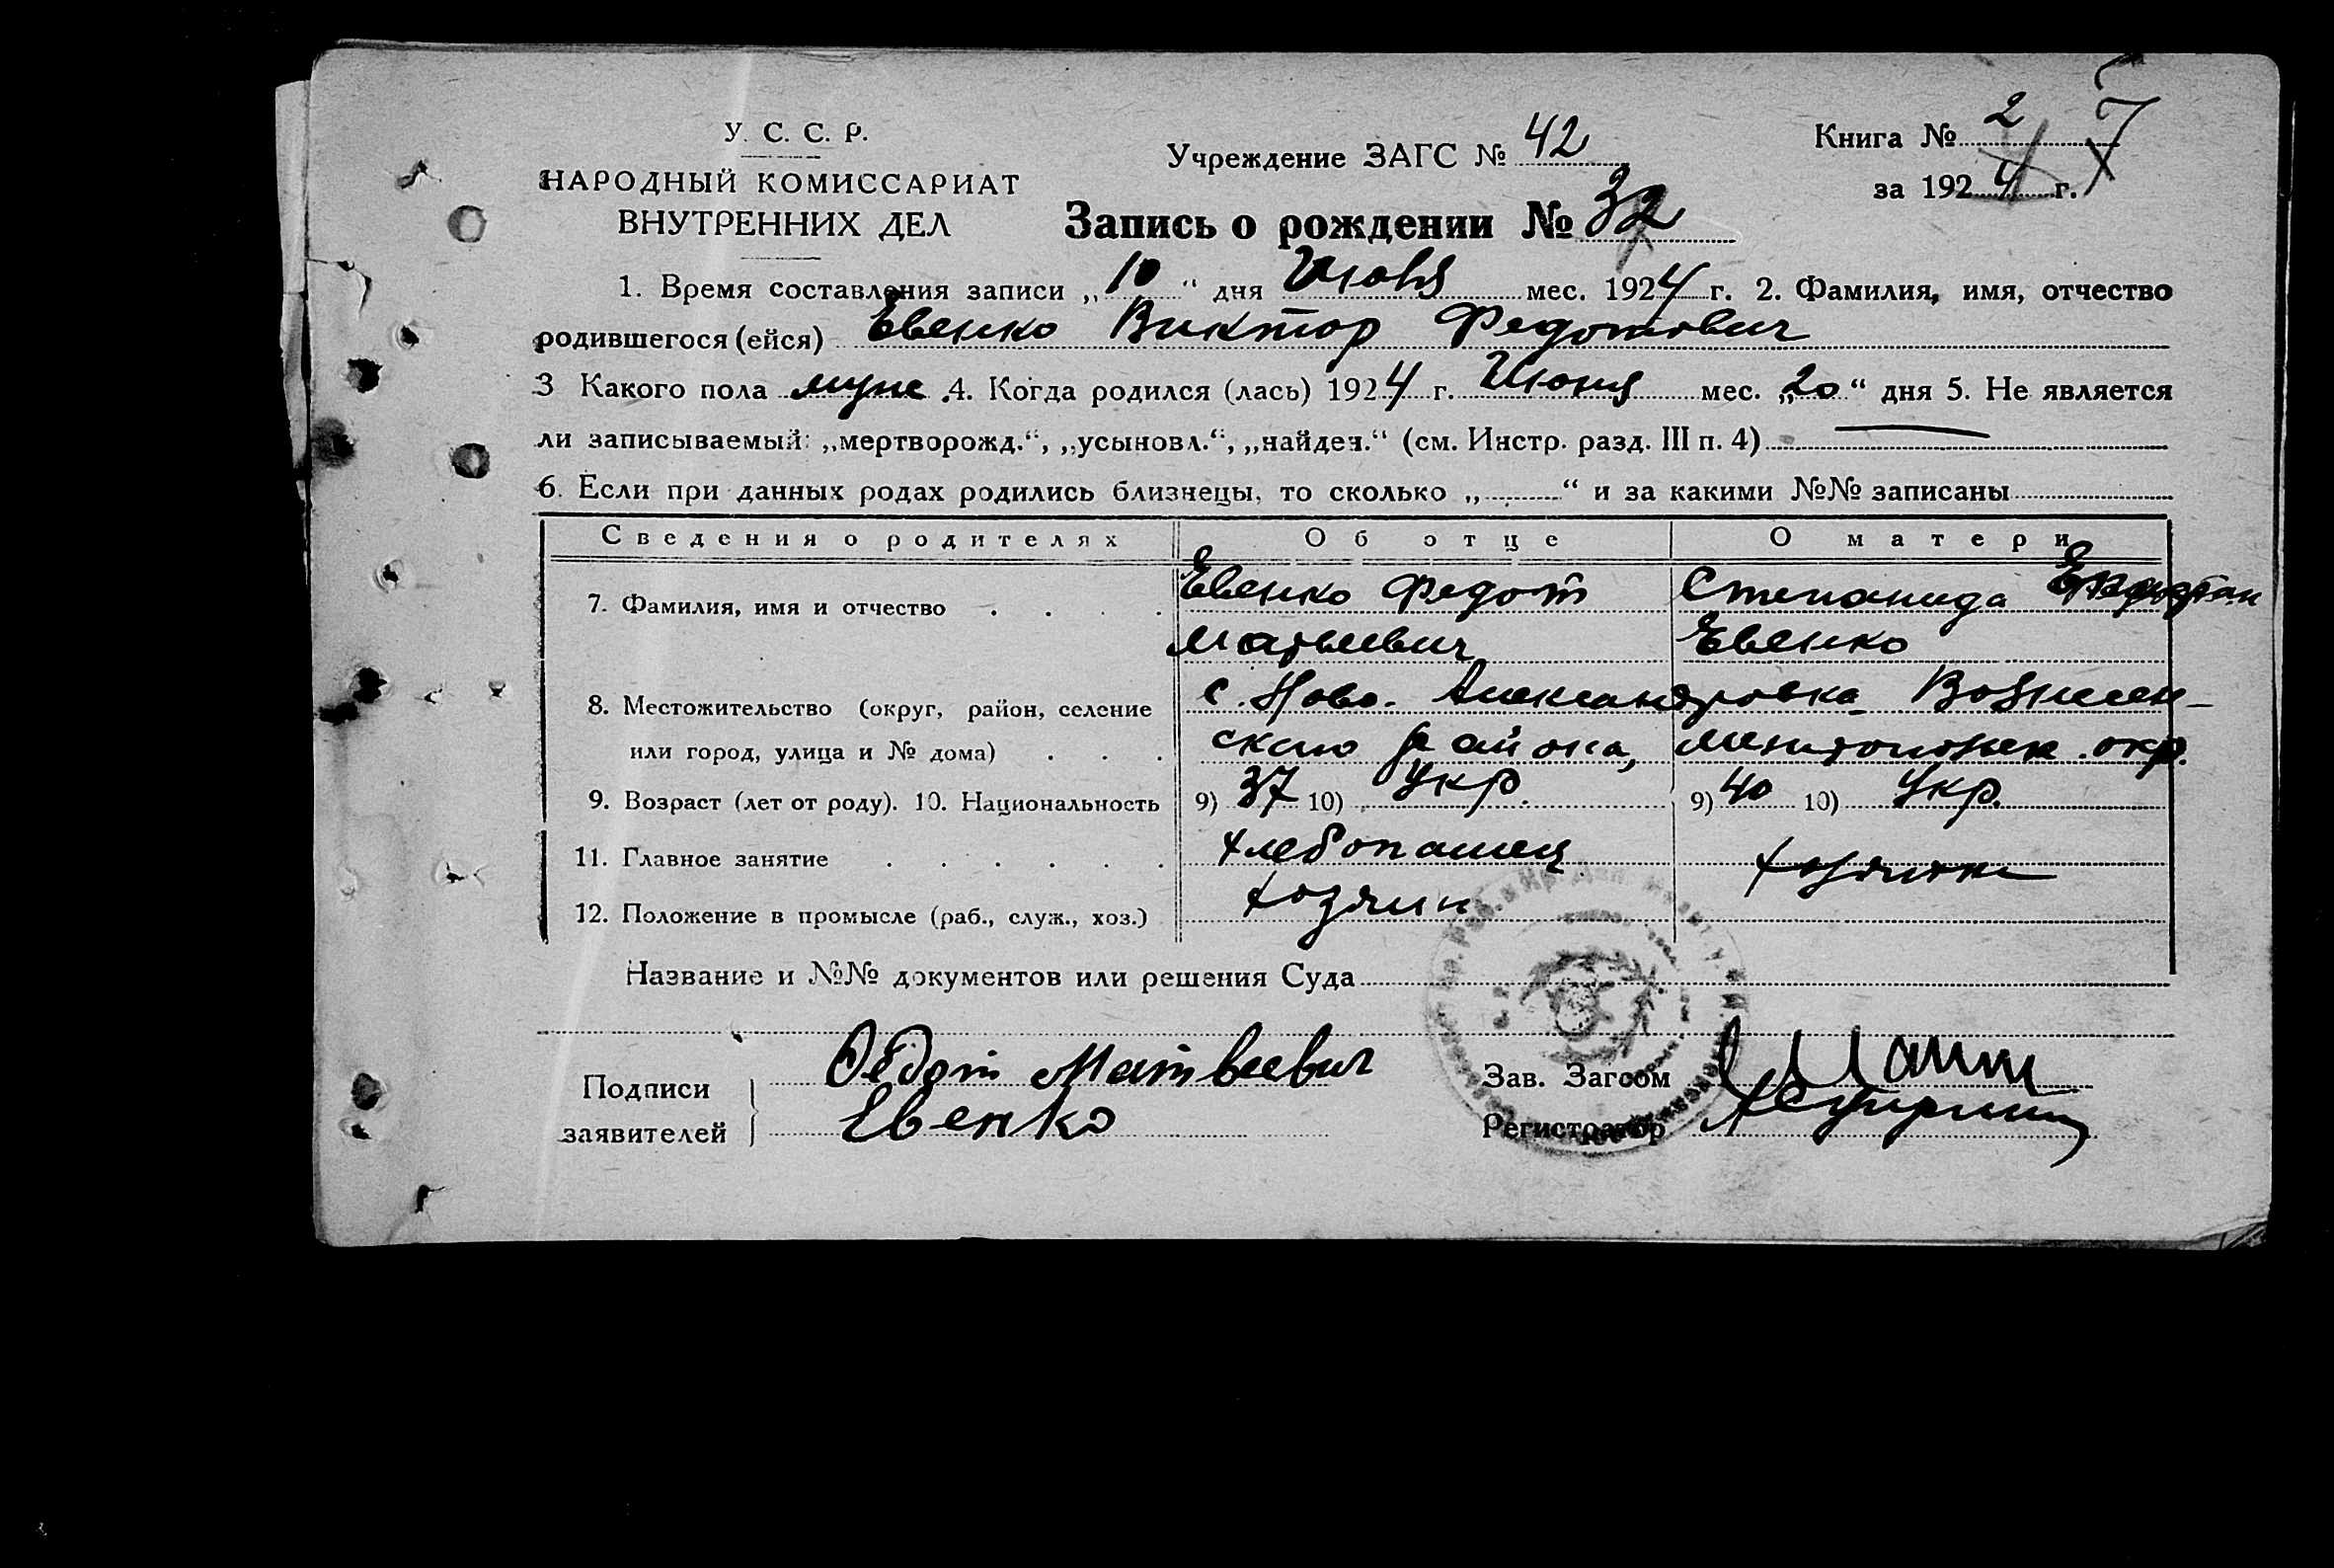 У. С. С. Р.
НАРОДНЫЙ КОМИССАРИАТ
ВНУТРЕННИХ ДЕЛ
Учреждение ЗАГС № 42
Книга № 2 7
за 1924 г.
Запись о рождении № 32
1. Время составления записи „10“ дня Июля мес. 1924 г. 2. Фамилия, имя, отчество
родившегося (ейся) Евенко Виктор Федотович
3 Какого пола муж. 4. Когда родился (лась) 1924 г. Июня мес. „20“ дня 5. Не является
ли записываемый: „мертворожд.“, „усыновл.“, „найден.“ (см. Инстр. разд. III п. 4)
6. Если при данных родах родились близнецы, то сколько „ “ и за какими №№ записаны
Сведения о родителях Об отце О матери
7. Фамилия, имя и отчество Евенко Федот Степанида
Матвеевич Евенко
8. Местожительство (округ, район, селение с. Ново-Александровка Вознесен-
или город, улица и № дома) ского района, Мелитопольск. окр.
9. Возраст (лет от роду). 10. Национальность 9) 37 10) Укр. 9) 40 10) Укр.
11. Главное занятие хлебопашец
12. Положение в промысле (раб., служ., хоз.) хозяин
Название и №№ документов или решения Суда
Подписи заявителей Федот Матвеевич
Евенко
Зав. Загсом
Регистратор